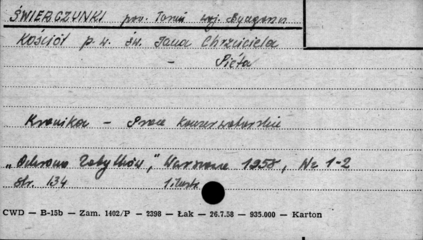 ŚWIERCZYNKI pow. Toruń woj. Bydgoszcz
Kościół p. w. św. Jana Chrzciciela
— Pieta
Kronika — Prace konserwatorskie
„Ochrona Zabytków," Warszawa 1958, Nr 1-2
str. 134 1 ilustr.
CWD — B-15b — Zam. 1402/P — 2398 — Łak — 26.7.58 — 935.000 — Karton